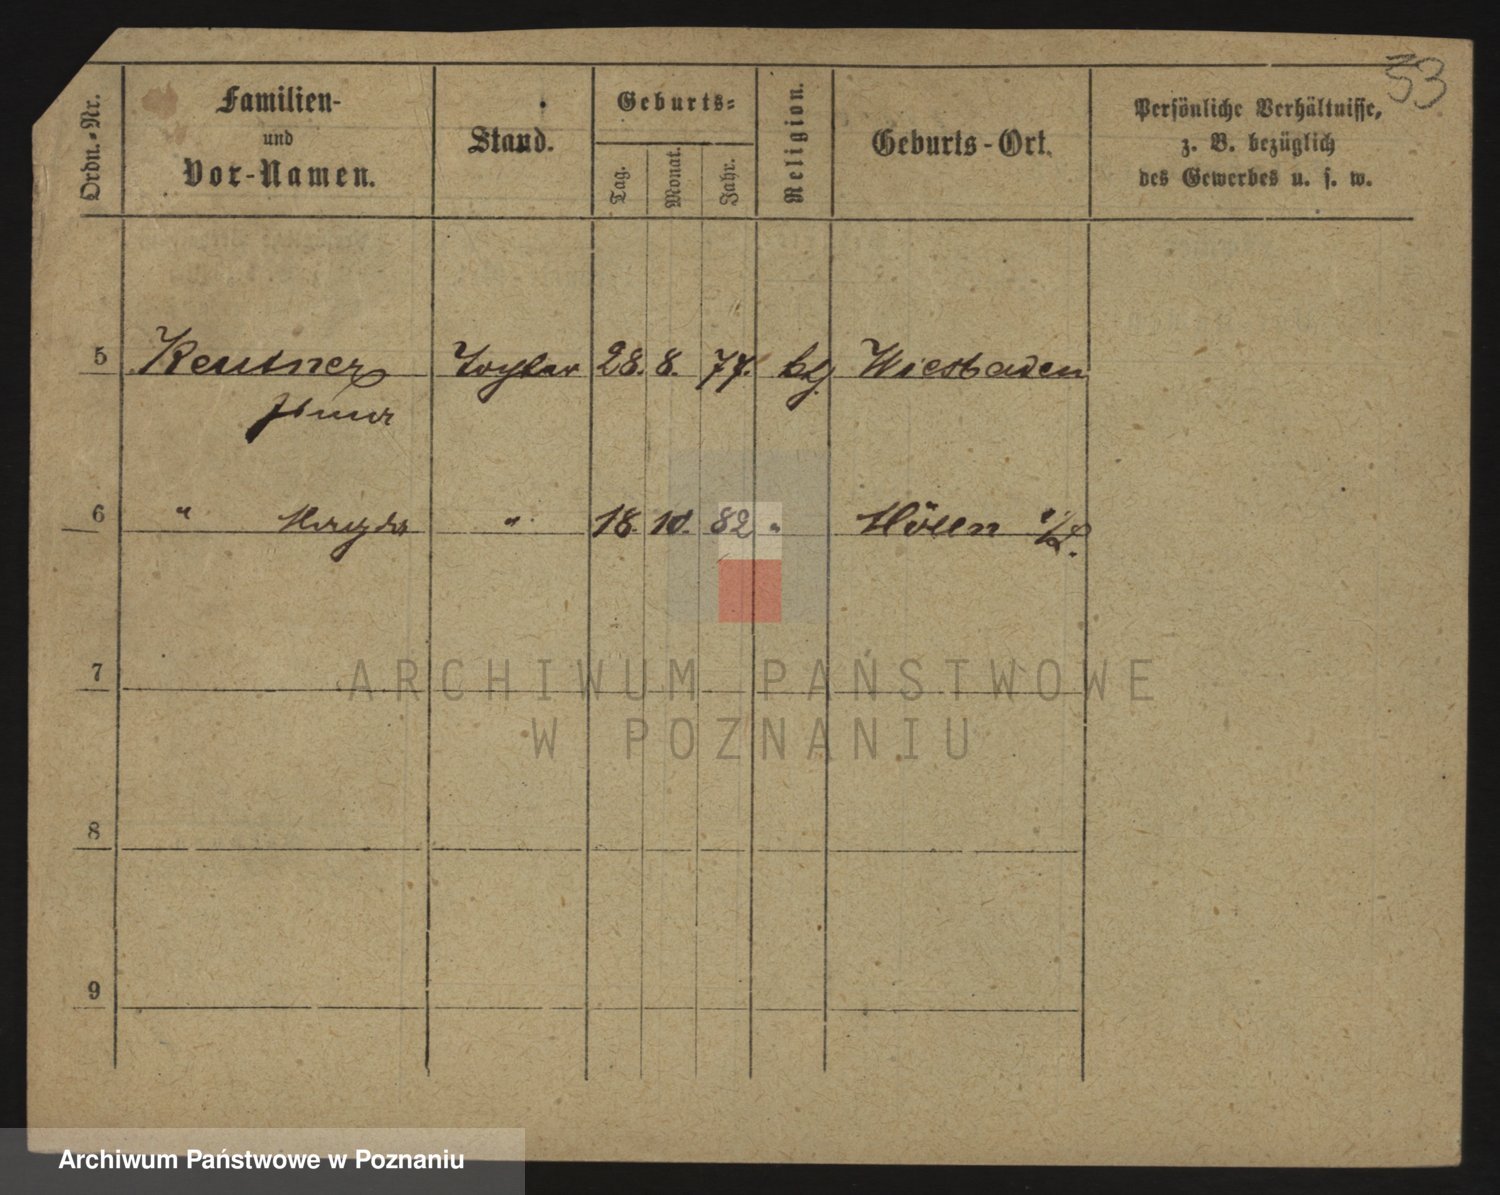 53
Ordn.-Nr.
Familien-
und
Vor-Namen.
Stand.
Geburts-
Tag.
Monat.
Jahr.
Religion.
Geburts-Ort.
Persönliche Verhältnisse,
z. B. bezüglich
des Gewerbes u. s. w.
5 Keutner 28. 8. 77. Wiesbaden
6 " " 18. 10. 82 "
7
ARCHIWUM PAŃSTWOWE
W POZNANIU
8
9
Archiwum Państwowe w Poznaniu